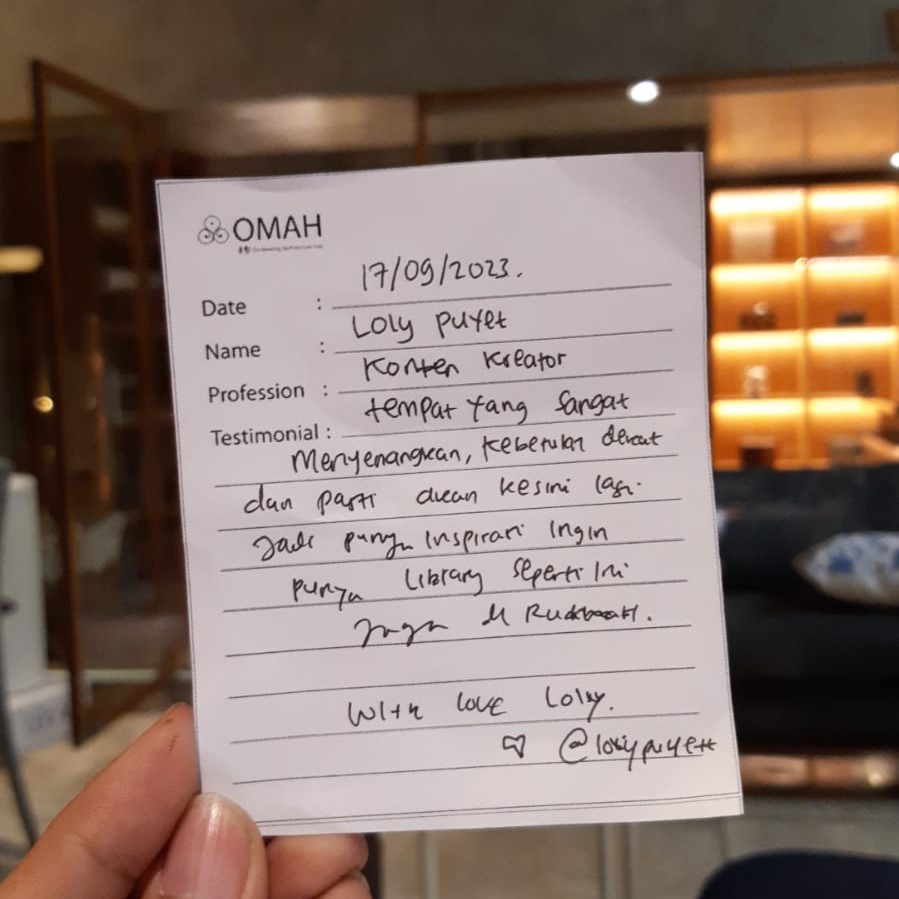 OMAH
Date : 17/09/2023.
Name : Loly Puyet
Profession : Konten Kreator
Testimonial : tempat yang sangat
Menyenangkan, kebetulan dekat
dan pasti akan kesini lagi.
Jadi punya Inspirasi Ingin
punya library seperti ini
Juga di
With love Loly.
♡ @lolypuyett